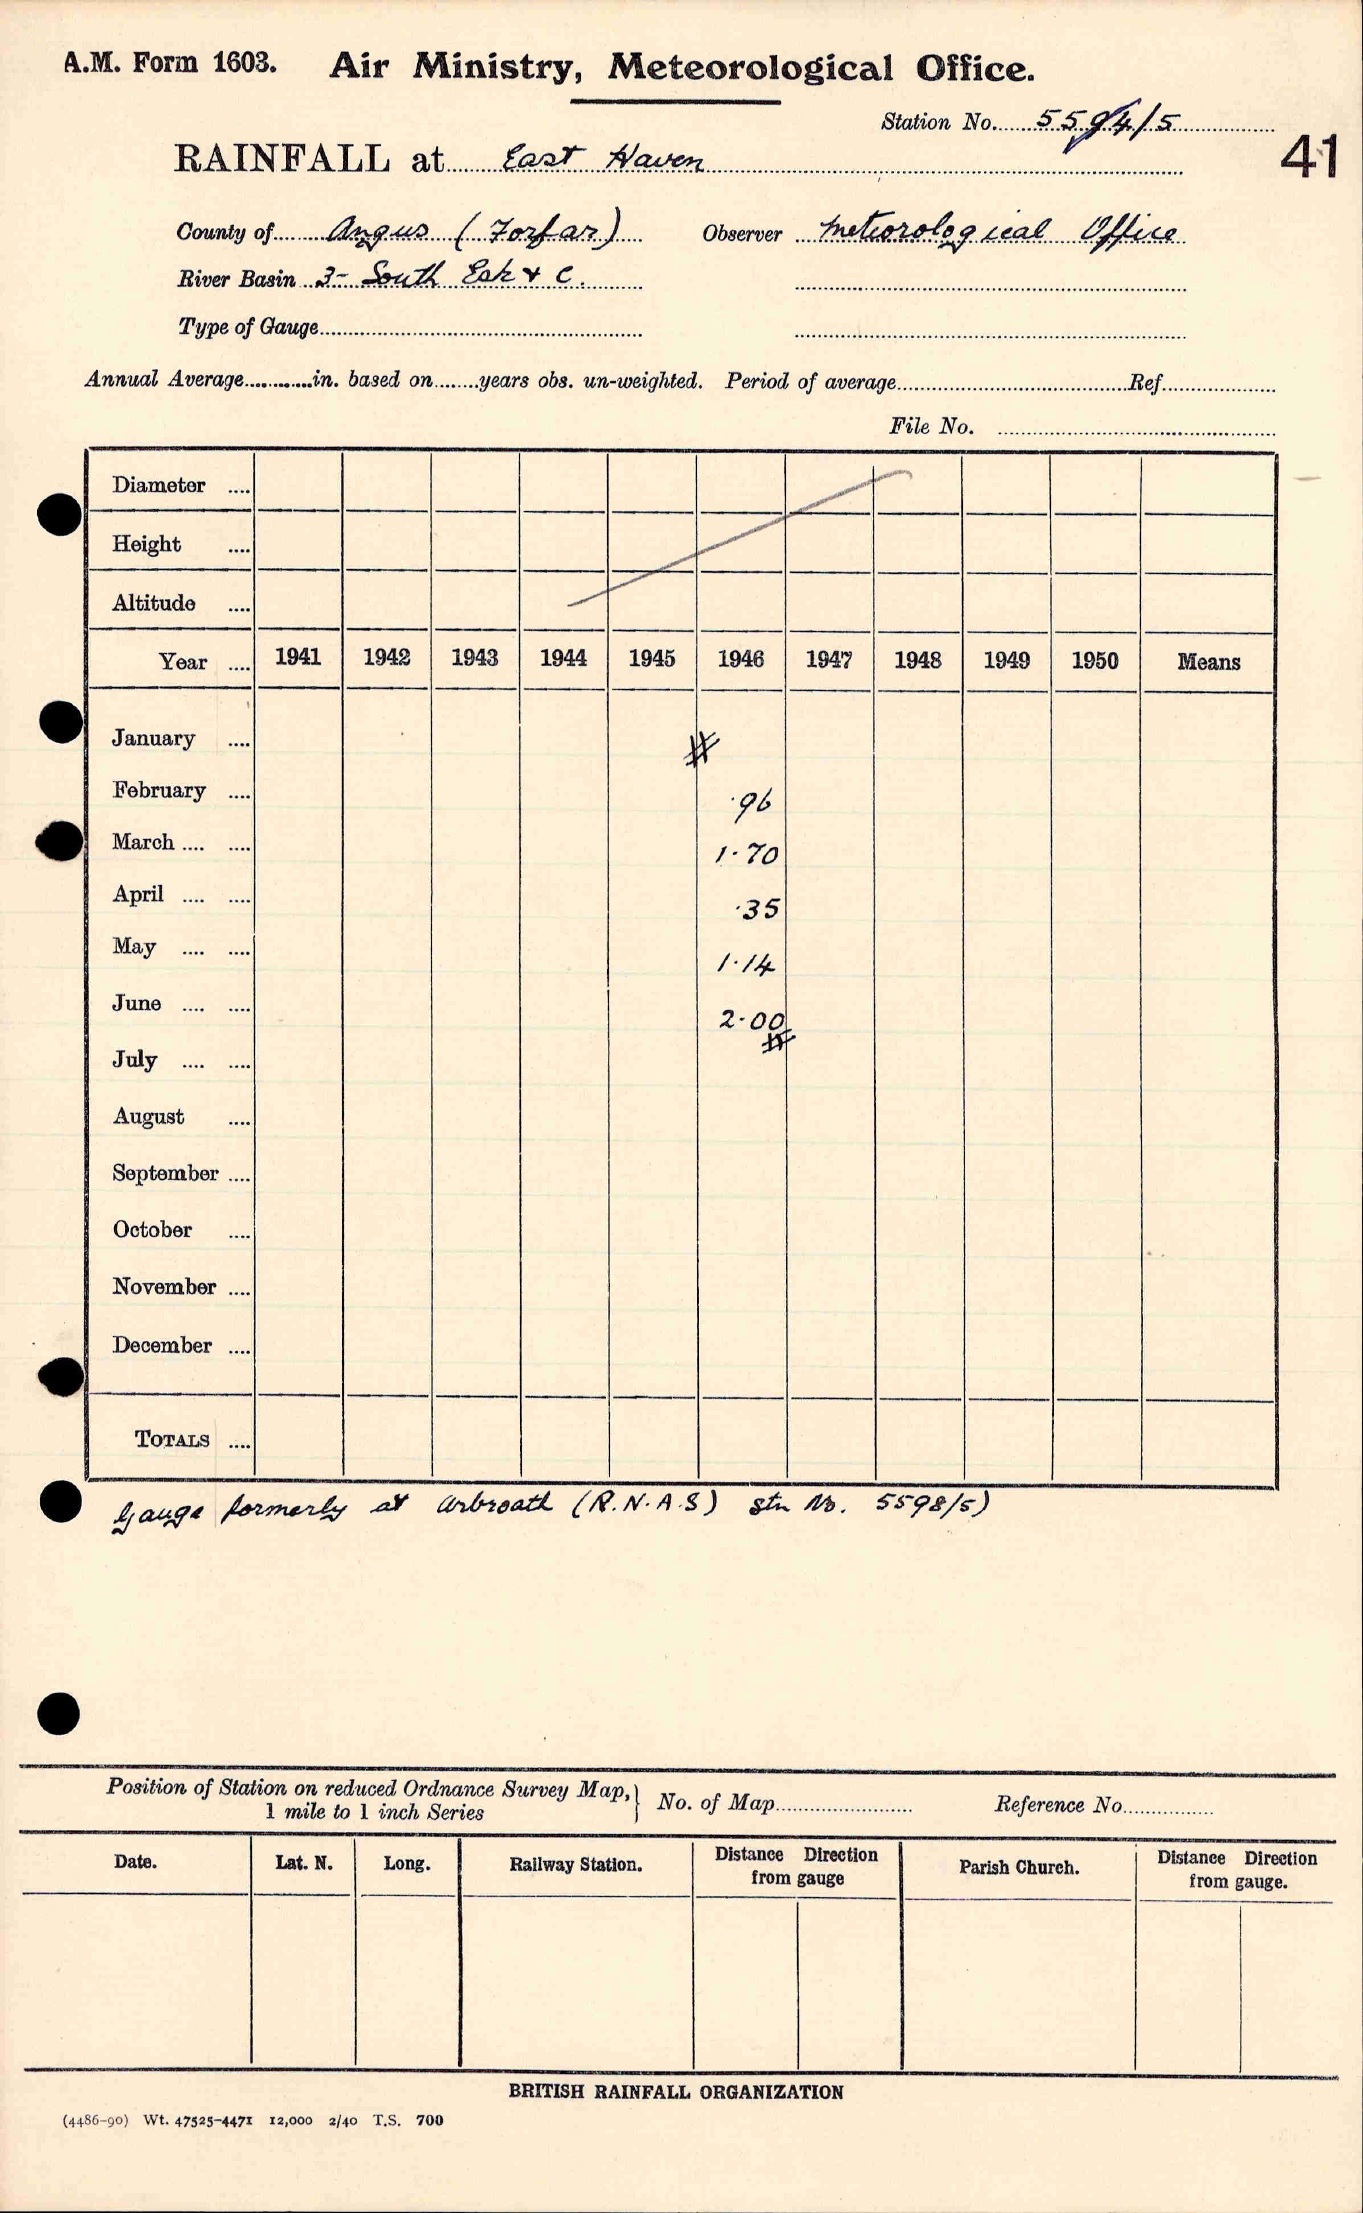 A.M. Form 1603. Air Ministry, Meteorological Office.
Station No. 5594/5
41
RAINFALL at East Haven
County of Angus (Forfar) Observer Meteorological Office
River Basin 3- South Esk & C.
Type of Gauge
Annual Average in. based on years obs. un-weighted. Period of average Ref.
File No.
Diameter ....
Height ....
Altitude ....
Year .... 1941 1942 1943 1944 1945 1946 1947 1948 1949 1950 Means
January .... #
February .... ·96
March .... .... 1·70
April .... .... ·35
May .... .... 1·14
June .... .... 2·00
#
July .... ....
August ....
September ....
October ....
November ....
December ....
TOTALS ....
Gauge formerly at Arbroath (R.N.A.S) stn No. 5598/5)
Position of Station on reduced Ordnance Survey Map, } No. of Map Reference No.
1 mile to 1 inch Series
Date. Lat. N. Long. Railway Station. Distance Direction from gauge Parish Church. Distance Direction from gauge.
BRITISH RAINFALL ORGANIZATION
(4486-90) Wt. 47525-4471 12,000 2/40 T.S. 700